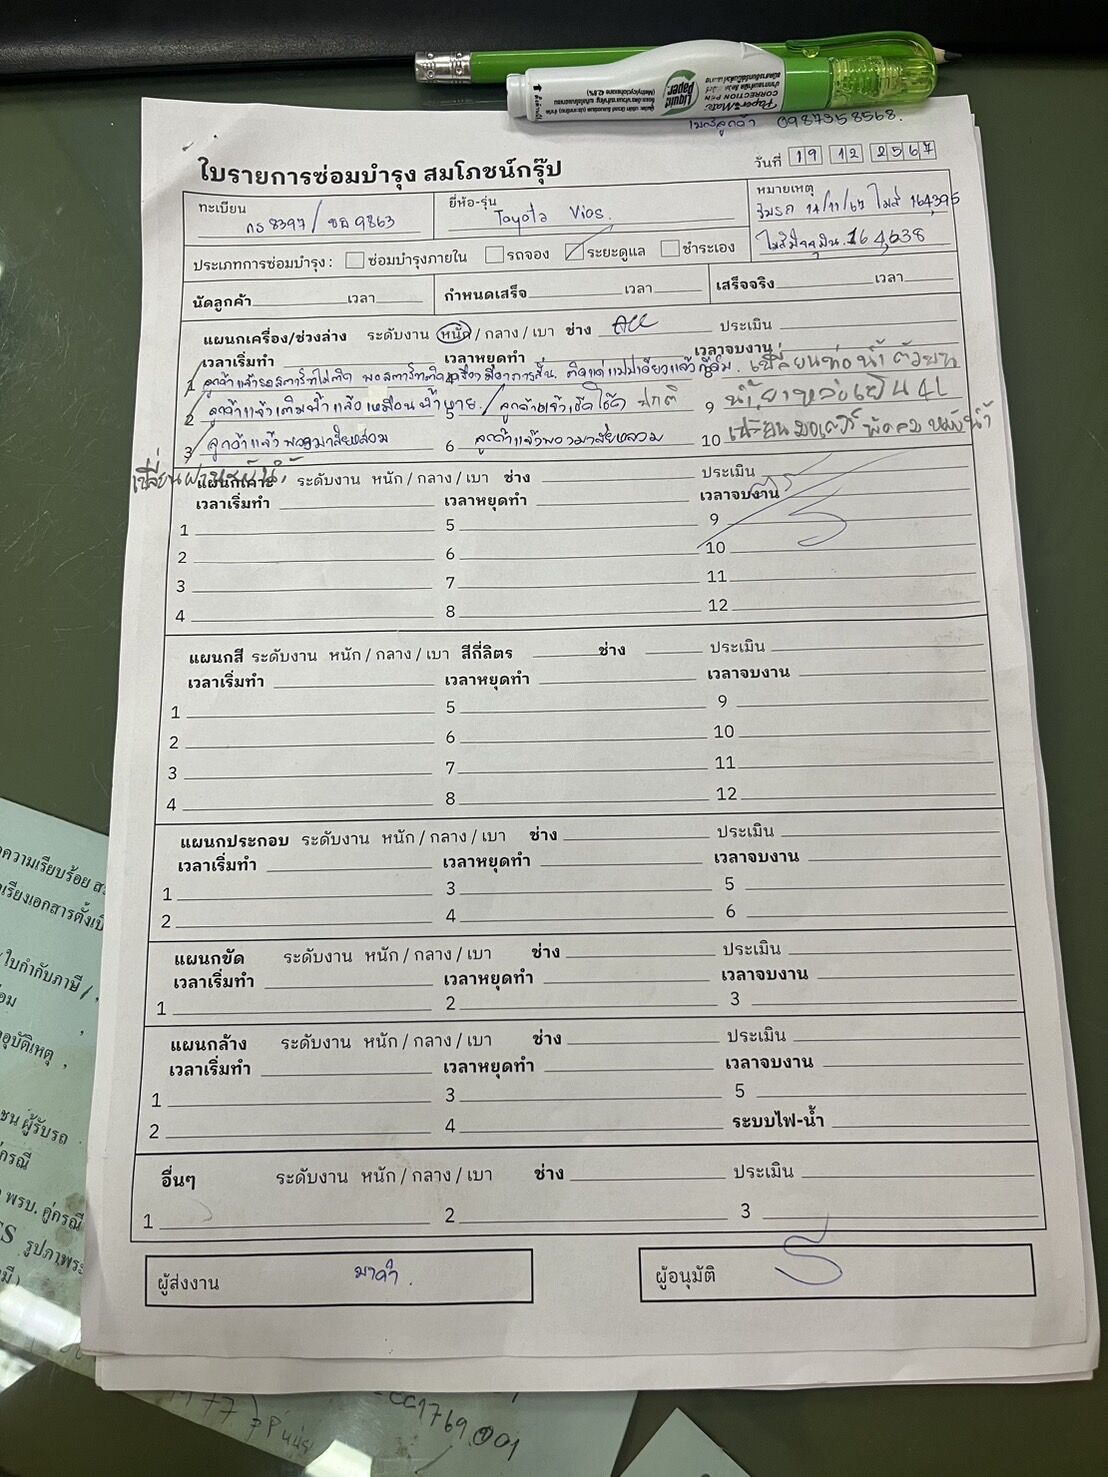 Paper Mate
CORRECTION PEN
liquid paper
เบอร์ลูกค้า 0987358568.
ใบรายการซ่อมบำรุง สมโภชน์กรุ๊ป
วันที่ 19 12 2567
ทะเบียน กร 8397 / ขอ 9863 ยี่ห้อ-รุ่น Toyota Vios. หมายเหตุ
รับรถ 14/11/67 ไมล์ 164,395
ไมล์ปัจจุบัน. 164,638
ประเภทการซ่อมบำรุง : ซ่อมบำรุงภายใน รถจอง ระยะดูแล ชำระเอง
นัดลูกค้า เวลา กำหนดเสร็จ เวลา เสร็จจริง เวลา
แผนกเครื่อง/ช่วงล่าง ระดับงาน หนัก / กลาง / เบา ช่าง ประเมิน
เวลาเริ่มทำ เวลาหยุดทำ เวลาจบงาน
1 ลูกค้าแจ้งรถสตาร์ทไม่ติด พอสตาร์ทติดเครื่องมีอาการสั่น. ติดแค่แปปเดียวแล้วก็ดับ. 8 เปลี่ยนท่อน้ำตัวบน
2 ลูกค้าแจ้งเติมน้ำแล้วเหมือนน้ำหาย. 5 ลูกค้าแจ้งเช็คโช๊ค ปกติ 9 น้ำยาหล่อเย็น 4L
3 ลูกค้าแจ้ง พวงมาลัยหลวม 6 ลูกค้าแจ้งพวงมาลัยหลวม 10 เปลี่ยนมอเตอร์ พัดลม หม้อน้ำ
แผนกเคาะ ระดับงาน หนัก / กลาง / เบา ช่าง ประเมิน
เวลาเริ่มทำ เวลาหยุดทำ เวลาจบงาน
1 5 9
2 6 10
3 7 11
4 8 12
แผนกสี ระดับงาน หนัก / กลาง / เบา สีกี่ลิตร ช่าง ประเมิน
เวลาเริ่มทำ เวลาหยุดทำ เวลาจบงาน
1 5 9
2 6 10
3 7 11
4 8 12
แผนกประกอบ ระดับงาน หนัก / กลาง / เบา ช่าง ประเมิน
เวลาเริ่มทำ เวลาหยุดทำ เวลาจบงาน
1 3 5
2 4 6
แผนกขัด ระดับงาน หนัก / กลาง / เบา ช่าง ประเมิน
เวลาเริ่มทำ เวลาหยุดทำ เวลาจบงาน
1 2 3
แผนกล้าง ระดับงาน หนัก / กลาง / เบา ช่าง ประเมิน
เวลาเริ่มทำ เวลาหยุดทำ เวลาจบงาน
1 3 5
2 4 ระบบไฟ-น้ำ
อื่นๆ ระดับงาน หนัก / กลาง / เบา ช่าง ประเมิน
1 2 3
ผู้ส่งงาน ผู้อนุมัติ
ความเรียบร้อย
เรียงเอกสารดั้งเ
ใบกำกับภาษี
อุบัติเหตุ
ชน ผู้รับรถ
พรบ. คู่กรณี
รูปภาพ